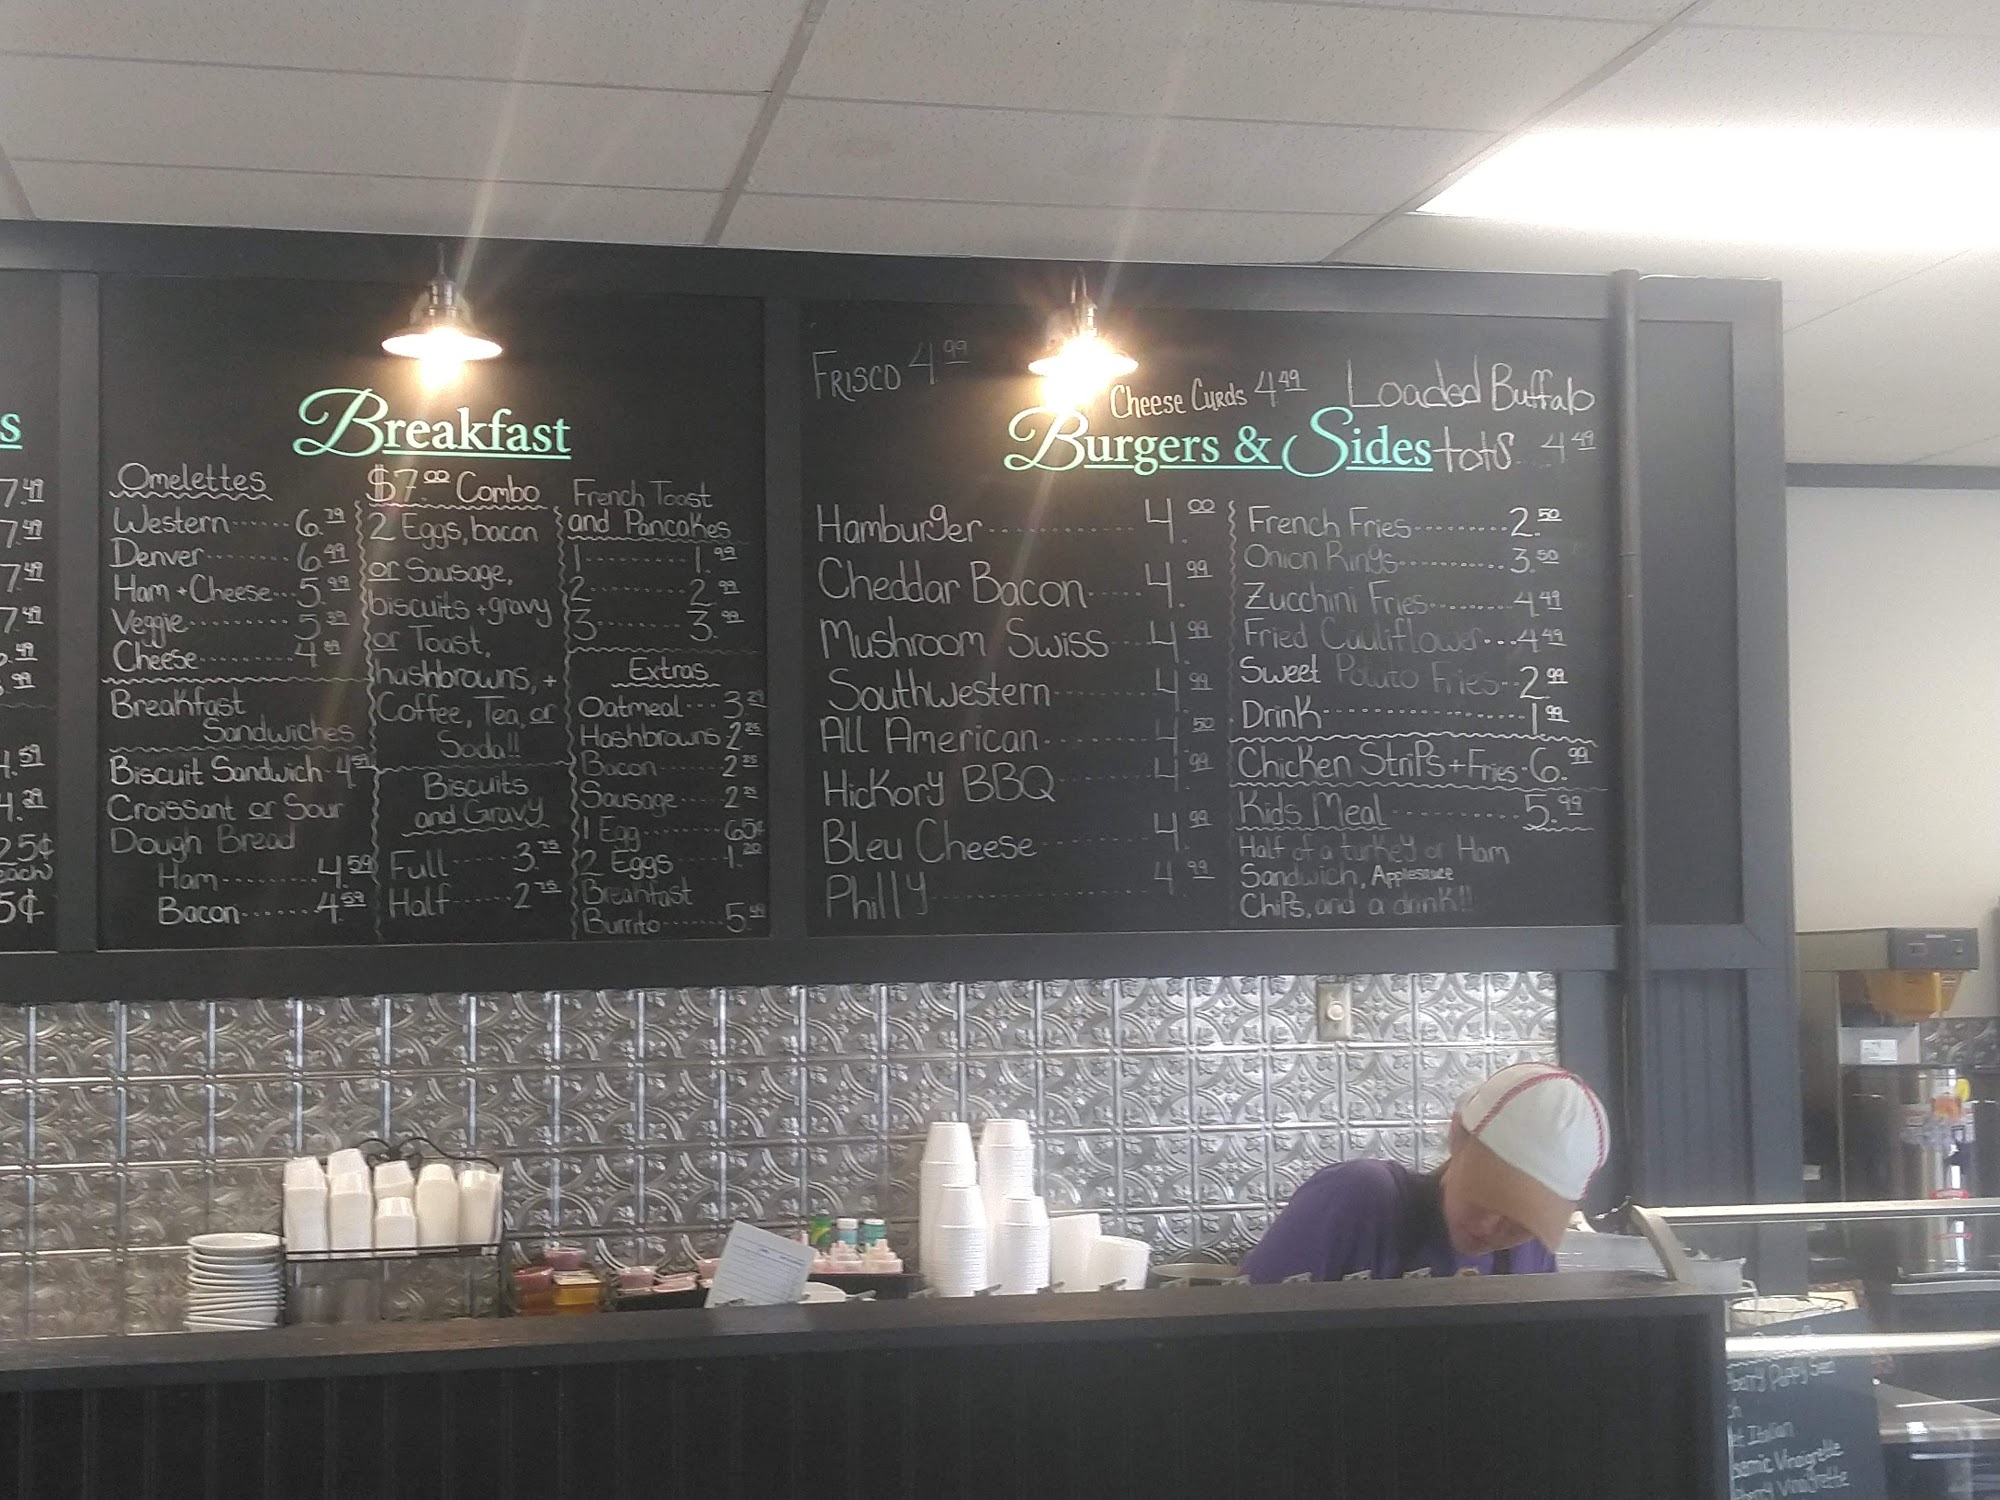 s
7.49
7.49
7.49
7.49
.49
.99
4.59
4.29
25¢
each
5¢
Breakfast
Omelettes
Western 6.79
Denver 6.49
Ham + Cheese 5.99
Veggie 5.39
Cheese 4.89
Breakfast
Sandwiches
Biscuit Sandwich 4.59
Croissant or Sour
Dough Bread
Ham 4.59
Bacon 4.59
$7.00 Combo
2 Eggs, bacon
or Sausage,
biscuits + gravy
or Toast,
hashbrowns, +
Coffee, Tea, or
Soda!!
Biscuits
and Gravy
Full 3.75
Half 2.75
French Toast
and Pancakes
1 1.99
2 2.99
3 3.99
Extras
Oatmeal 3.29
Hashbrowns 2.25
Bacon 2.25
Sausage 2.25
1 Egg 65¢
2 Eggs 1.20
Breakfast
Burrito 5.49
Frisco 4.99
Cheese Curds 4.49
Loaded Buffalo
tots 4.49
Burgers & Sides
Hamburger 4.00
Cheddar Bacon 4.99
Mushroom Swiss 4.99
Southwestern 4.99
All American 4.50
Hickory BBQ 4.99
Bleu Cheese 4.99
Philly 4.99
French Fries 2.50
Onion Rings 3.50
Zucchini Fries 4.49
Fried Cauliflower 4.49
Sweet Potato Fries 2.99
Drink 1.99
Chicken Strips + Fries 6.99
Kids Meal 5.99
Half of a turkey or Ham
Sandwich, Applesauce
Chips, and a drink!!
berry Poppy Seed
Italian
Vinaigrette
Vinaigrette